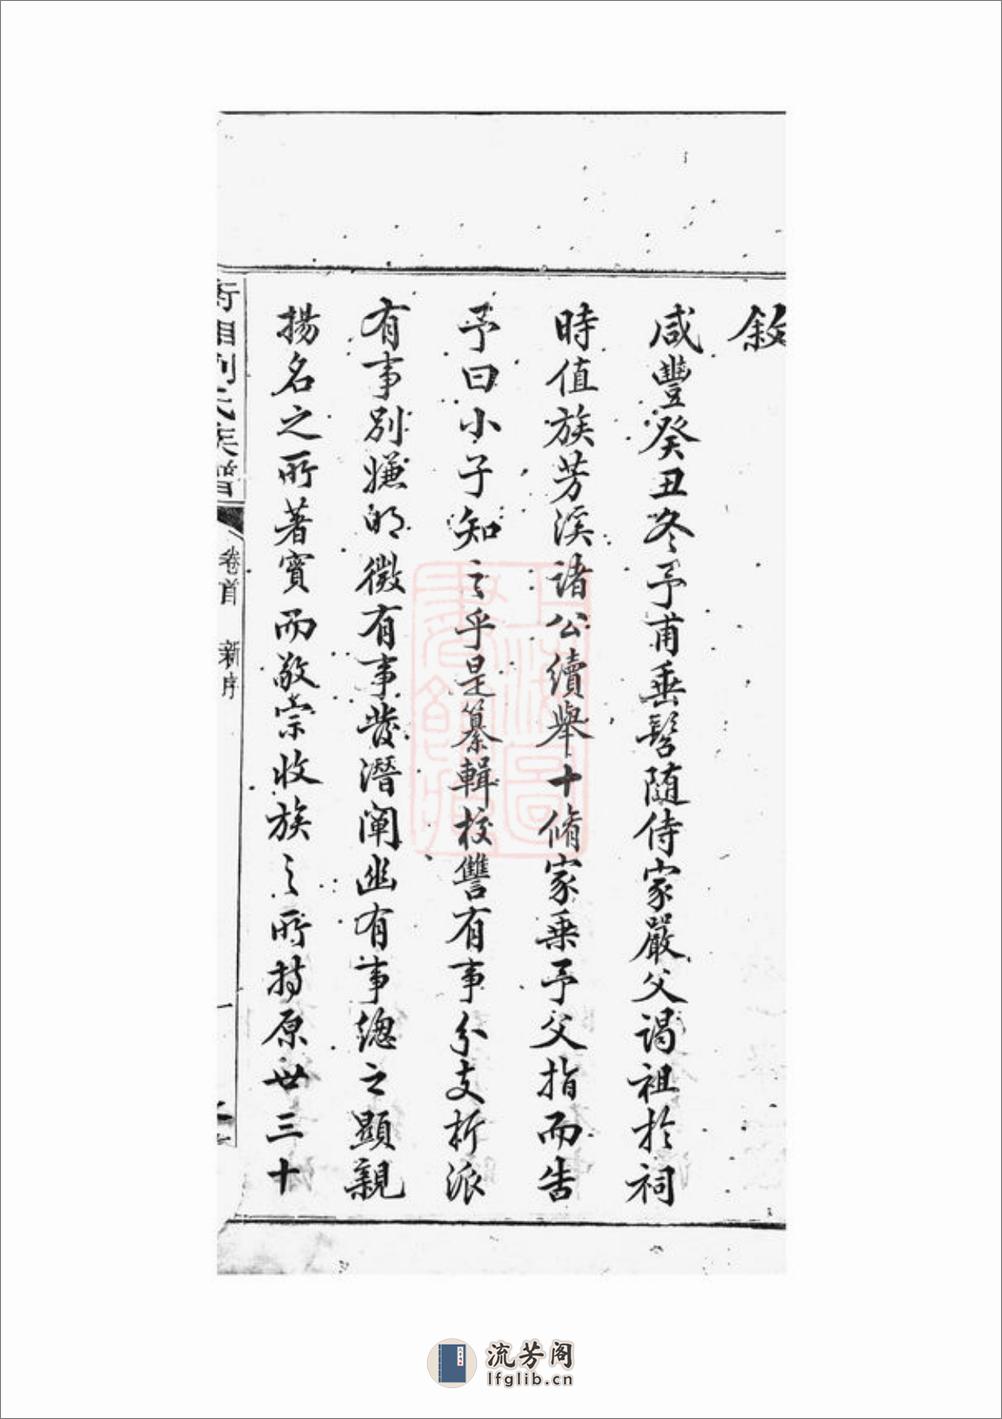 敘
咸豐癸丑冬予甫垂髫隨侍家嚴父謁祖於祠
時值族芳溪諸公續舉十脩家乗予父指而告
予曰小子知之乎是纂輯校讐有事分支析派
有事別嫌明微有事發潛闡幽有事總之顯親
揚名之所著實而敬宗收族之所持原世三十
劉氏族譜
卷首 新序
一
上海圖書館藏
流芳阁
lfglib.cn